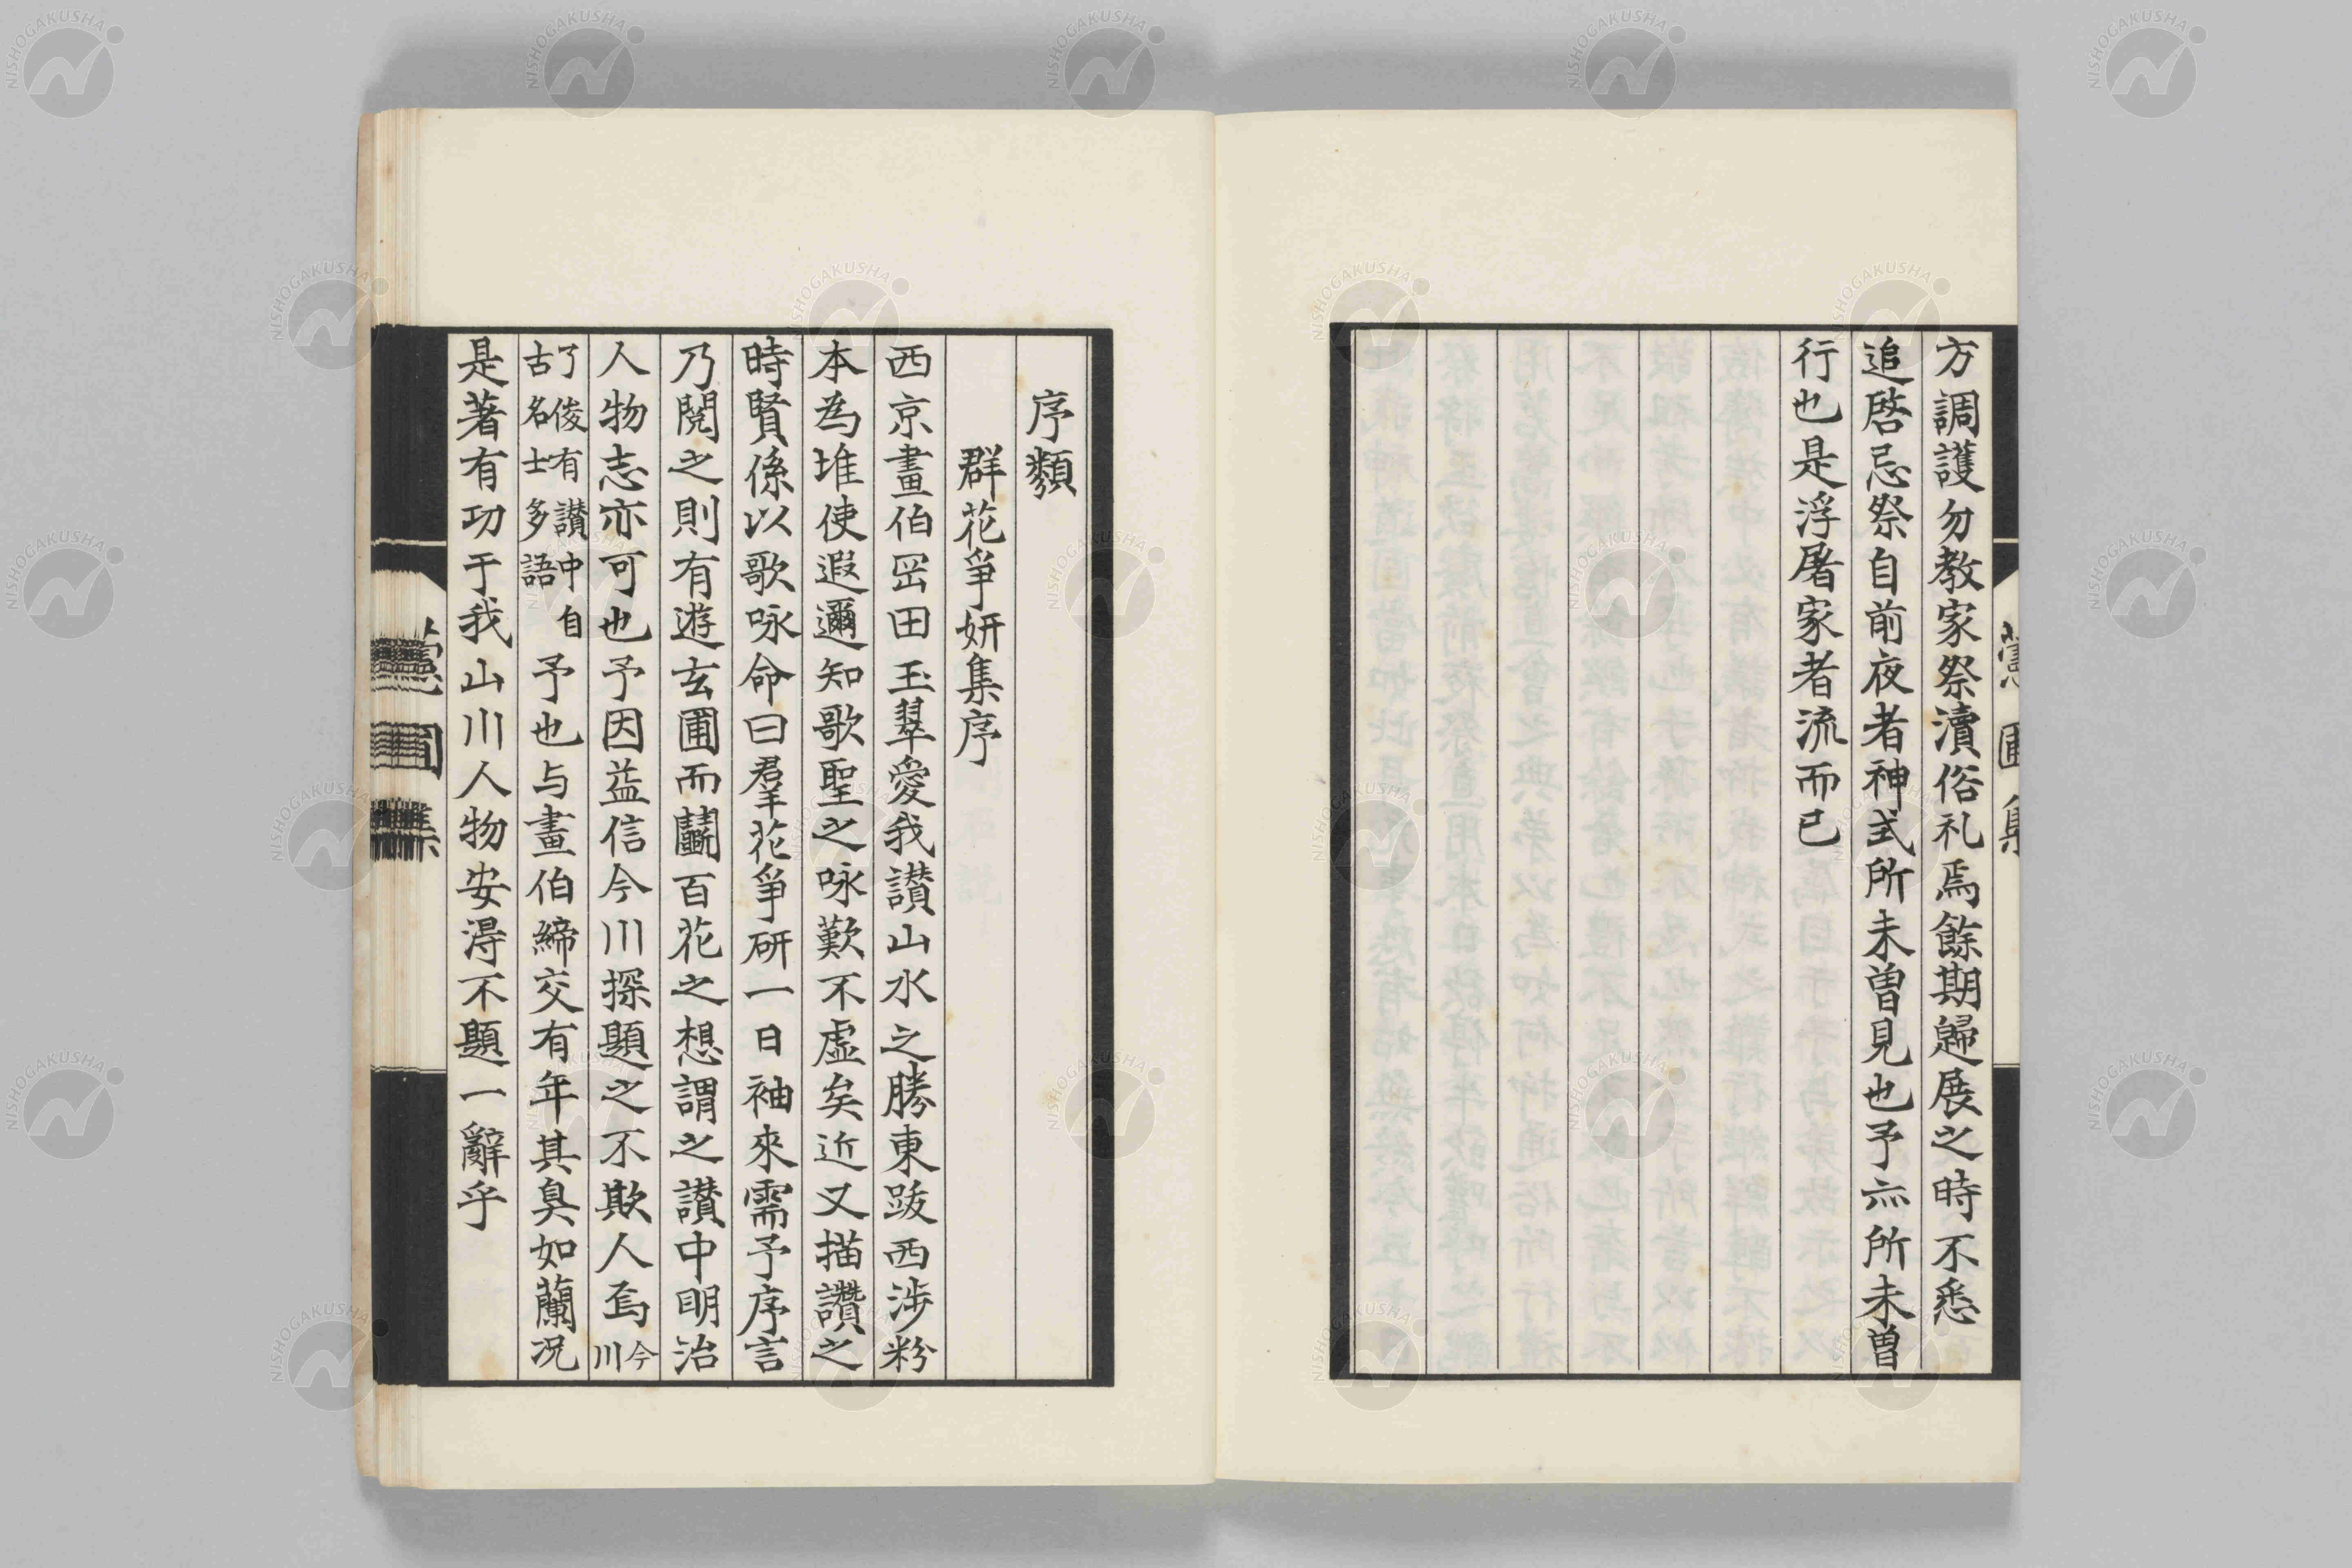 方調護勿教家祭瀆俗礼焉餘期歸展之時不悉
追啓忌祭自前夜者神式所未曽見也予亦所未曽
行也是浮屠家者流而已
序類
群花爭妍集序
西京畫伯岊田玉翠愛我讃山水之勝東跋西渉粉
本為堆使遐邇知歌聖之咏歎不虚矣近又描讚之
時賢係以歌咏命曰羣花爭研一日袖來需予序言
乃閲之則有遊玄圃而鬭百花之想謂之讃中明治
人物志亦可也予因益信今川探題之不欺人焉今川
了俊有讃中自古名士多語予也与畫伯締交有年其臭如蘭况
是著有功于我山川人物安淂不題一辭乎
圃集
NISHOGAKUSHA